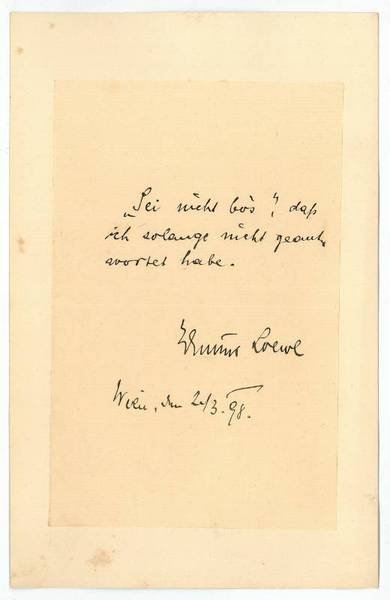 „Sei nicht bös", daß
ich solange nicht geant-
wortet habe.
Loewe
Wien, den 2/3. 98.